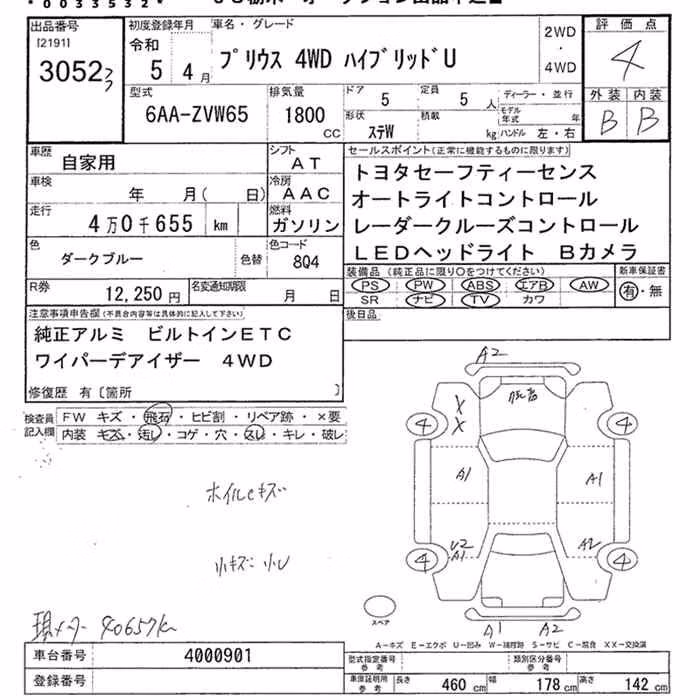 *0033532*
出品番号
[2191]
3052
初度登録年月
令和
5 4月
車名・グレード
プリウス 4WD ハイブリッドU
2WD
・
4WD
評価点
4
外装 内装
B B
型式
6AA-ZVW65
排気量
1800
CC
ドア 5
定員 5 人
形状
ステW
積載
kg
ディーラー・並行
モデル年式 年
ハンドル 左・右
車歴 自家用
シフト AT
車検 年 月( 日)
冷房 AAC
走行 4万0千655 km
燃料 ガソリン
色 ダークブルー
色替
色コード 8Q4
R券 12,250円
名変通知期限 月 日
セールスポイント(正常に機能するものに限ります)
トヨタセーフティーセンス
オートライトコントロール
レーダークルーズコントロール
LEDヘッドライト Bカメラ
装備品(純正品に限り○をつけてください)
PS PW ABS エアB AW
SR ナビ TV カワ
新車保証書
有・無
後日品
注意事項申告欄(不具合内容等は具体的に記入して下さい)
純正アルミ ビルトインETC
ワイパーデアイザー 4WD
修復歴 有〔箇所 〕
検査員記入欄
FW キズ・飛石・ヒビ割・リペア跡・×要
内装 キズ・汚レ・コゲ・穴・スレ・キレ・破レ
ホイルキズ
小キズ 小U
現メーター 40657km
A2
飛石
X
X
4 4
A1 A1
U2
A1
A2
4 4
スペア
A1 A2
A-キズ E-エクボ U-凹み W-補修跡 S-サビ C-腐食 XX-交換済
車台番号 4000901
登録番号
型式指定番号 参考
類別区分番号 参考
車庫証明用 参考
長さ 460 cm 幅 178 cm 高さ 142 cm